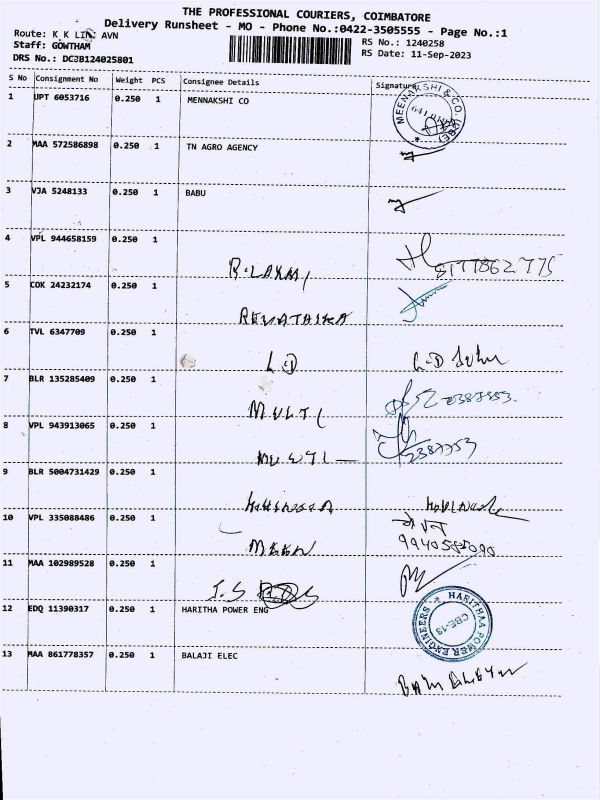 THE PROFESSIONAL COURIERS, COIMBATORE
Delivery Runsheet - MO - Phone No.:0422-3505555 - Page No.:1
Route: K K LIN AVN
Staff: GOWTHAM
DRS No.: DC3B124025801
RS No.: 1240258
RS Date: 11-Sep-2023
S No Consignment No Weight PCS Consignee Details Signature
1 UPT 6053716 0.250 1 MENNAKSHI CO
MEENAKSHI & CO.
2 MAA 572586898 0.250 1 TN AGRO AGENCY
3 VJA 5248133 0.250 1 BABU
4 VPL 944658159 0.250 1
R. LAXMI
5 COK 24232174 0.250 1
6 TVL 6347709 0.250 1
L.D
7 BLR 135285409 0.250 1
MULTI
8 VPL 943913065 0.250 1
9 BLR 5004731429 0.250 1
10 VPL 335088486 0.250 1
MEEN
11 MAA 102989528 0.250 1
J.S
12 EDQ 11390317 0.250 1 HARITHA POWER ENG
HARITHAA POWER ENGINEERS
CBE-13
13 MAA 861778357 0.250 1 BALAJI ELEC